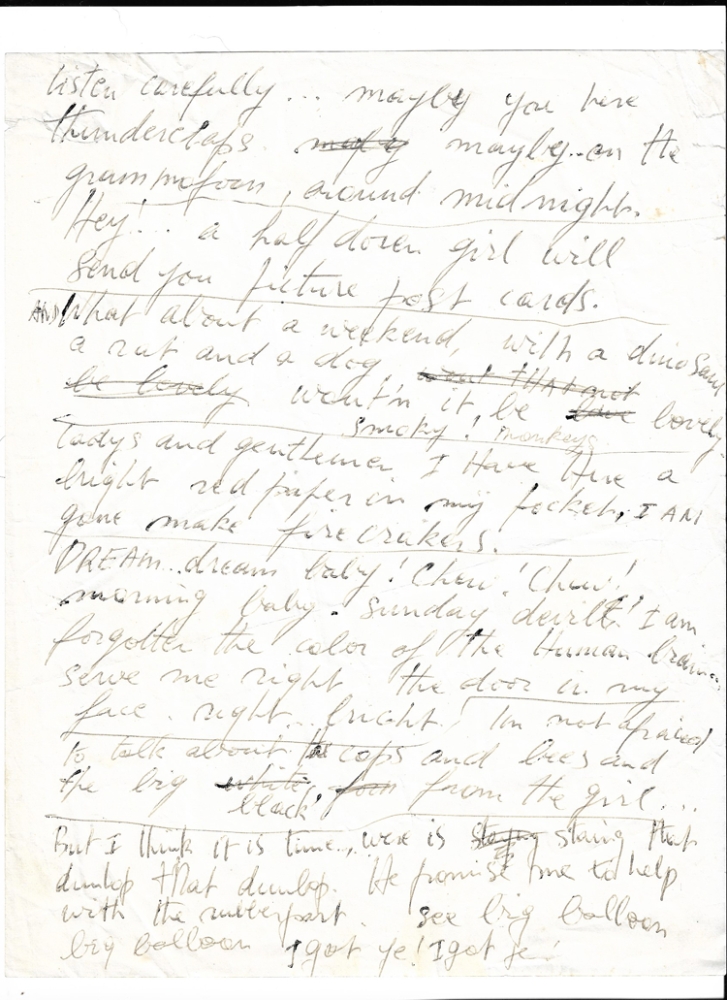 listen carefully... mayby you here
thunderclaps mayby.. on the
grammofoon, around midnight.
Hey!.. a half dozen girl will
send you picture post cards.
AND What about a weekend, with a dinosaur
a rut and a dog, want THAT not
be lovely wount'n it be lovely
smoky! monkeys
ladys and gentlemen I Have Here a
bright red paper in my pocket, I AM
gone make firecrakers.
DREAM.. dream baby! Chew! Chew!
morning baby. Sunday devill! I am
forgotten the color of the Human brain..
serve me right the door in my
face. right.. bright! Im not afraied
to talk about the cops and bees and
the big white from from the girl...
black!
But I think it is time.., were is staing that
dunlop that dunlop. He promise me to help
with the rubberpart. see big balloon
big balloon I got ye! I got ye!